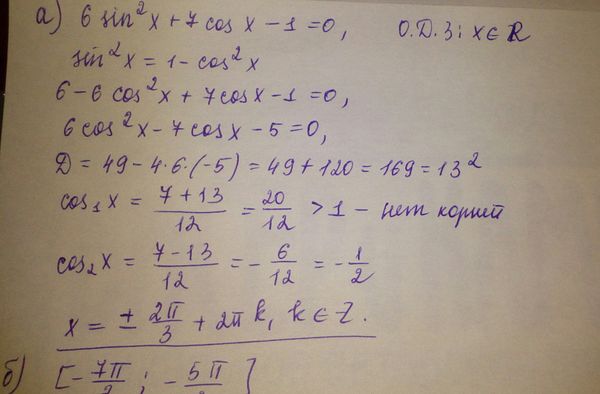 а) 6 sin²x + 7 cos x − 1 = 0, О.Д.З: x ∈ R
sin²x = 1 − cos²x
6 − 6 cos²x + 7cos x − 1 = 0,
6 cos²x − 7 cos x − 5 = 0,
D = 49 − 4·6·(−5) = 49 + 120 = 169 = 13²
cos₁x = (7+13)/12 = 20/12 > 1 − нет корней
cos₂x = (7−13)/12 = −6/12 = −1/2
x = ± 2π/3 + 2πk, k ∈ Z.
б) [−7π/2 ; −5π/ ]